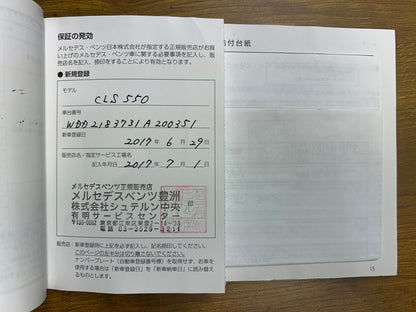 保証の発効
メルセデス・ベンツ日本株式会社が指定する正規販売店がお買
い上げのメルセデス・ベンツ車に関する必要事項を記入し、販
売店名を記入、捺印をすることにより有効となります。
● 新規登録
モデル
CLS 550
車台番号
WDD2183731A200351
新車登録日
2017年 6月 29日
販売店名/指定サービス工場名
記入年月日 2017年 7月 1日
メルセデスベンツ正規販売店
メルセデスベンツ豊洲
株式会社シュテルン中央
有明サービスセンター
〒135-0062 東京都江東区東雲2-14-33
電話 03-3529-3211
印
販売店:新車登録時に上記を必ず記入し、記名捺印してください。
このページの左半分は切り離さないでください。
ナンバープレート(自動車登録番号標)を取得せず、お車を
使用する場合は「新車登録日」を「新車納車日」に読み替え
るものとします。
付台紙
15